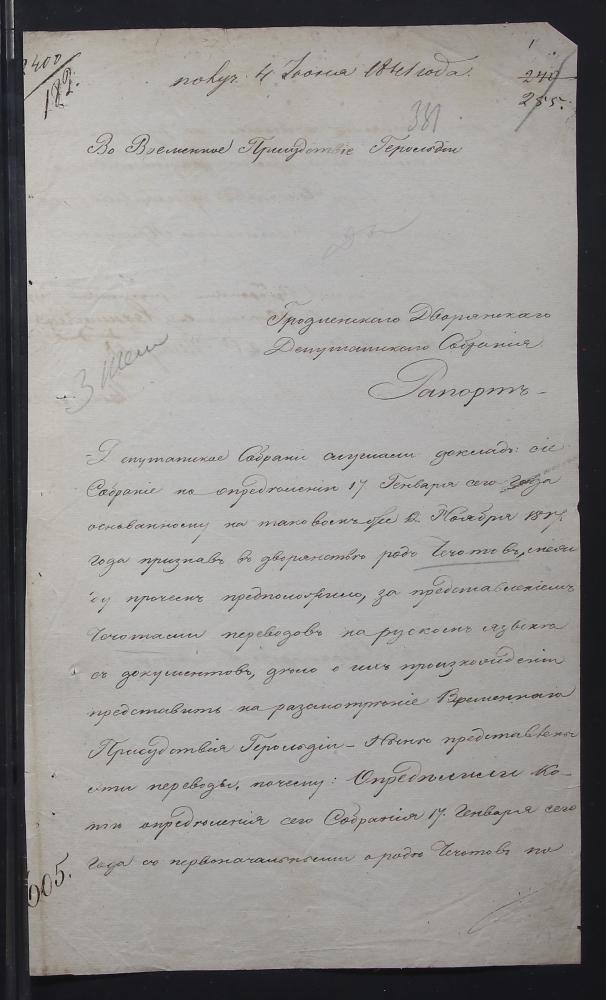 2400
182.
получ. 4 Июня 1841 года.
1
240
255.
381
Во Временное Присудствіе Герольдіи
Гродненскаго Дворянскаго
Депутатскаго Собранія
Рапортъ
Депутатское Собраніе слушали докладъ: сіе
Собраніе по опредѣленію 17 Генваря сего года
основанному на таковомъ же 12 Ноября
года признавъ въ дворянствѣ родъ Чечотовъ, между
прочемъ предположило, за представленіемъ
Чечотами переводовъ на рускомъ языкѣ
съ документовъ, дѣло о ихъ произхожденіи
представить на разсмотрѣніе Временнаго
Присудствія Герольдіи – Нынѣ представлены
эти переводы, почему: Опредѣлили Ко-
пію опредѣленія сего Собранія 17. Генваря сего
года съ первоначальными о родѣ Чечотовъ по
605.